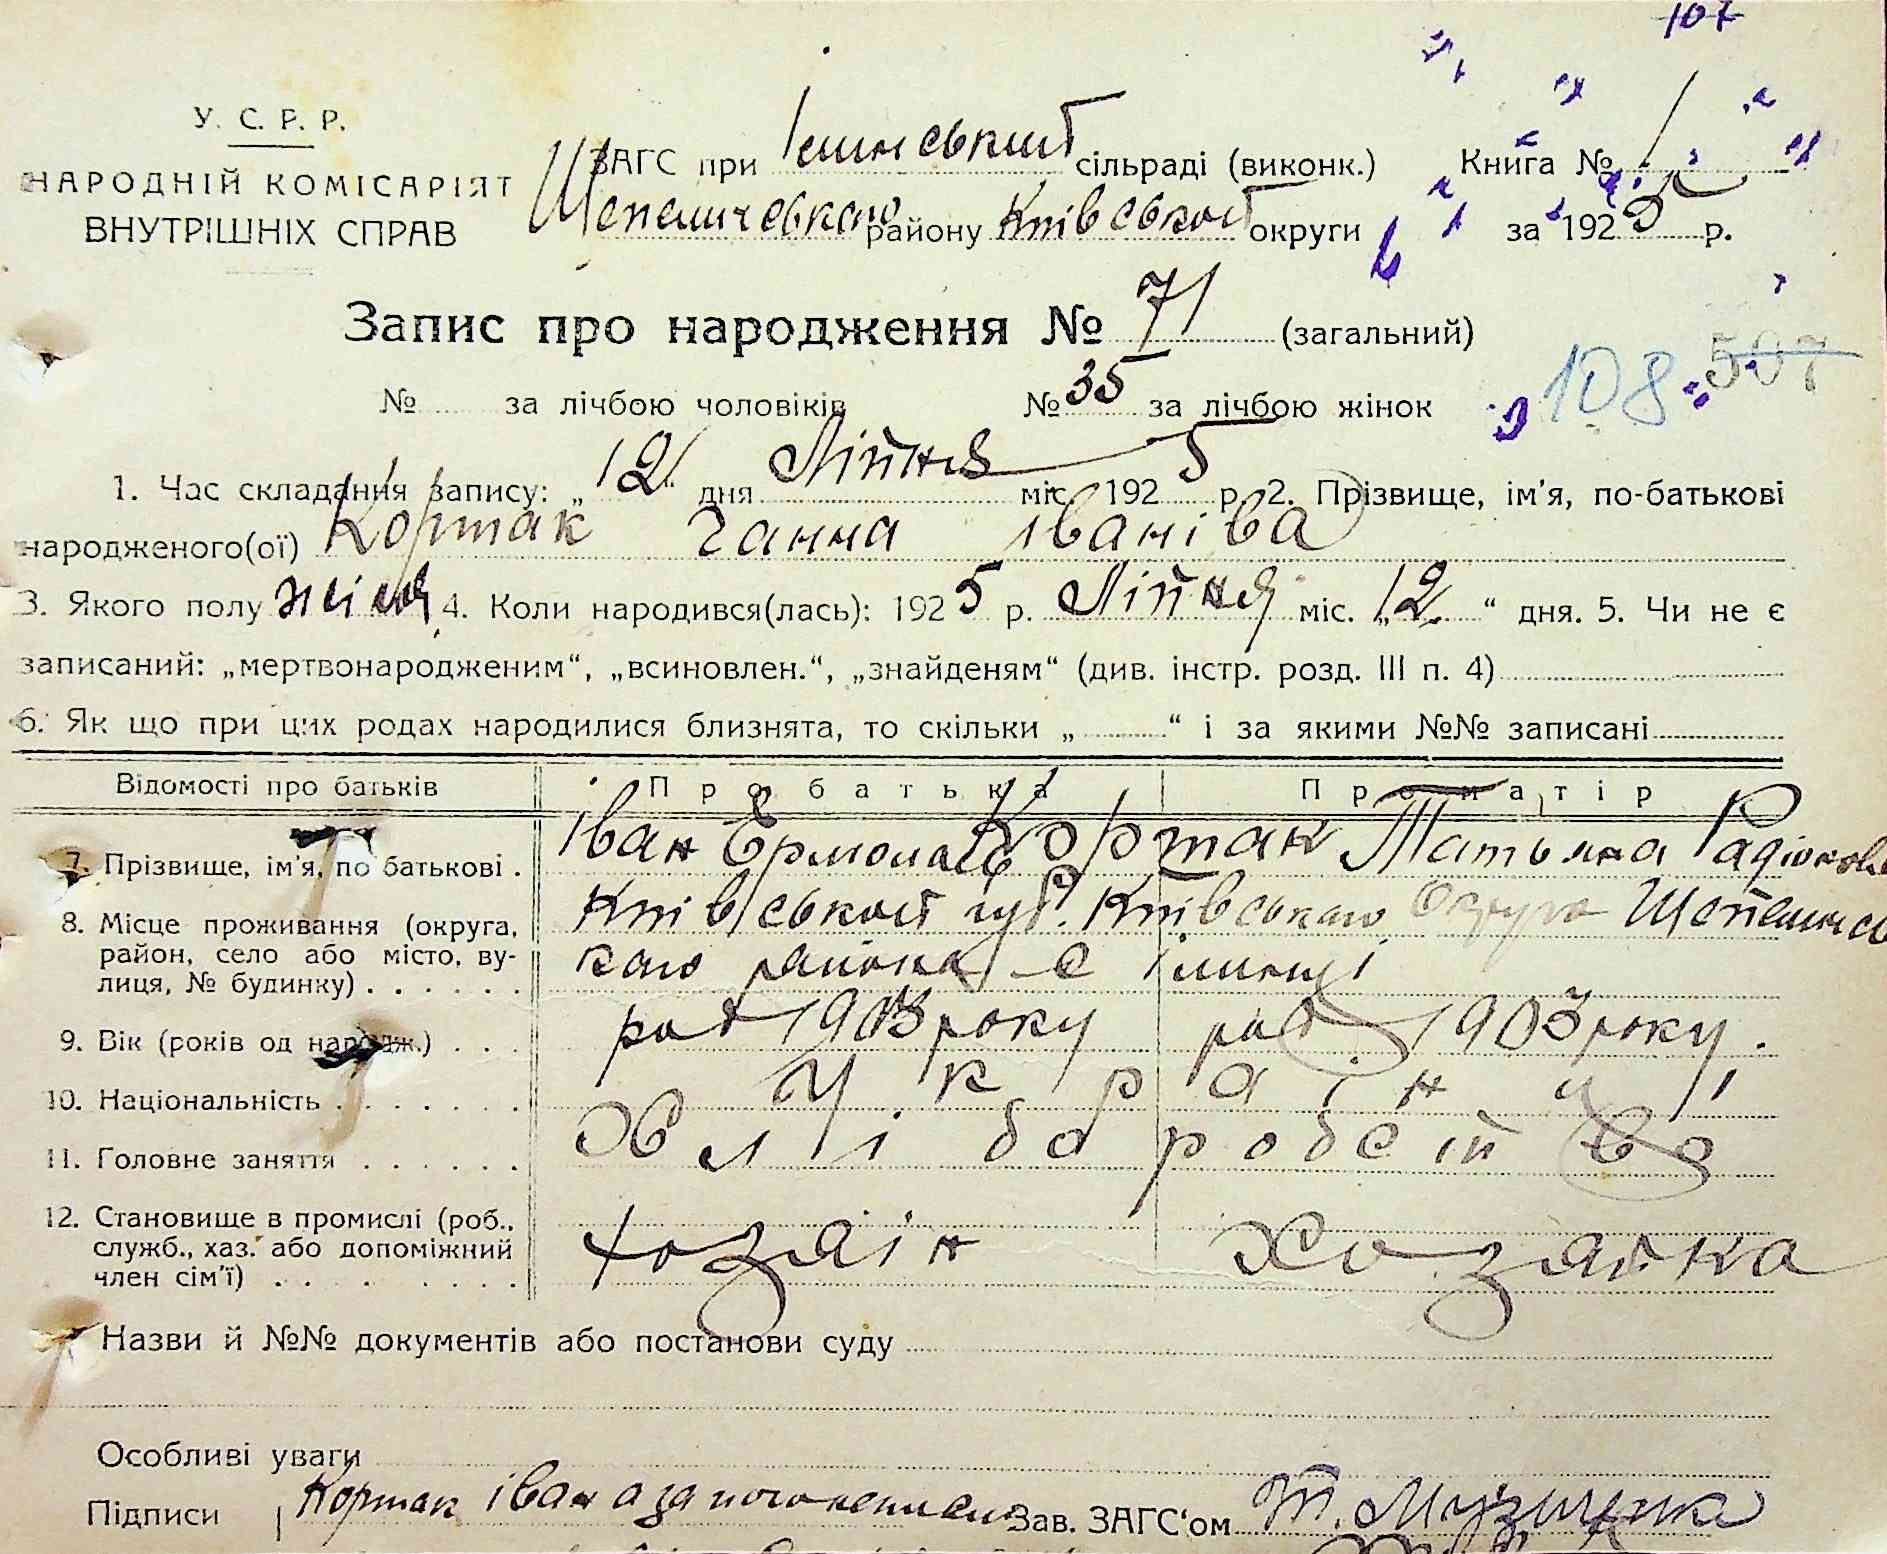 107
У. С. Р. Р.
НАРОДНІЙ КОМІСАРІЯТ
ВНУТРІШНІХ СПРАВ
ЗАГС при сільраді (виконк.) Книга № 1
району Київської округи за 1925 р.
Запис про народження № 71 (загальний)
№ за лічбою чоловіків № 35 за лічбою жінок
108 507
1. Час складання запису: „12“ дня Ліпня міс. 1925 р. 2. Прізвище, ім'я, по-батькові
народженого(ої) Коршак Ганна Іваніва
3. Якого полу жіноч 4. Коли народився(лась): 1925 р. Ліпня міс. „12“ дня. 5. Чи не є
записаний: „мертвонародженим“, „всиновлен.“, „знайденям“ (див. інстр. розд. III п. 4)
6. Як що при цих родах народилися близнята, то скільки „ “ і за якими №№ записані
Відомості про батьків Про батька Про матір
7. Прізвище, ім'я, по батькові . Іван Ермолаєв Коршак Татьяна Радіонова
8. Місце проживання (округа, Київської губ. Київського Округа
район, село або місто, ву- кого района с
лиця, № будинку) . . . . . .
9. Вік (років од народж.) . . . род 1903 року род 1903 року.
10. Національність . . . . . . . Українці
11. Головне заняття . . . . . . Хлібаробство
12. Становище в промислі (роб., хозяін Хозяйка
служб., хаз. або допоміжний
член сім'ї) . . . . . . .
Назви й №№ документів або постанови суду
Особливі уваги
Підписи Коршак Іван а за Зав. ЗАГС'ом